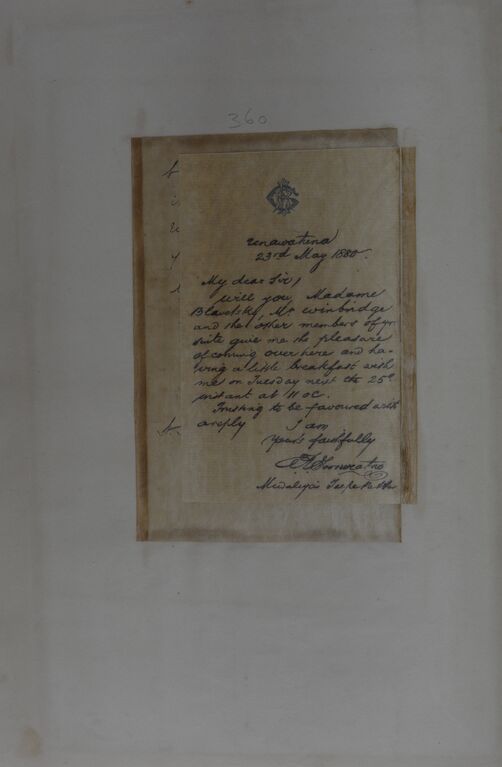 360
Unawatuna
23rd May 1880.
My dear Sir,
Will you, Madame
Blavatsky, Mr Winbridge
and the other members of yr
suite give me the pleasure
of coming over here and ha-
ving a little breakfast with
me on Tuesday next the 25th
instant at 11 oc.
Trusting to be favoured with
a reply
I am
Yours faithfully